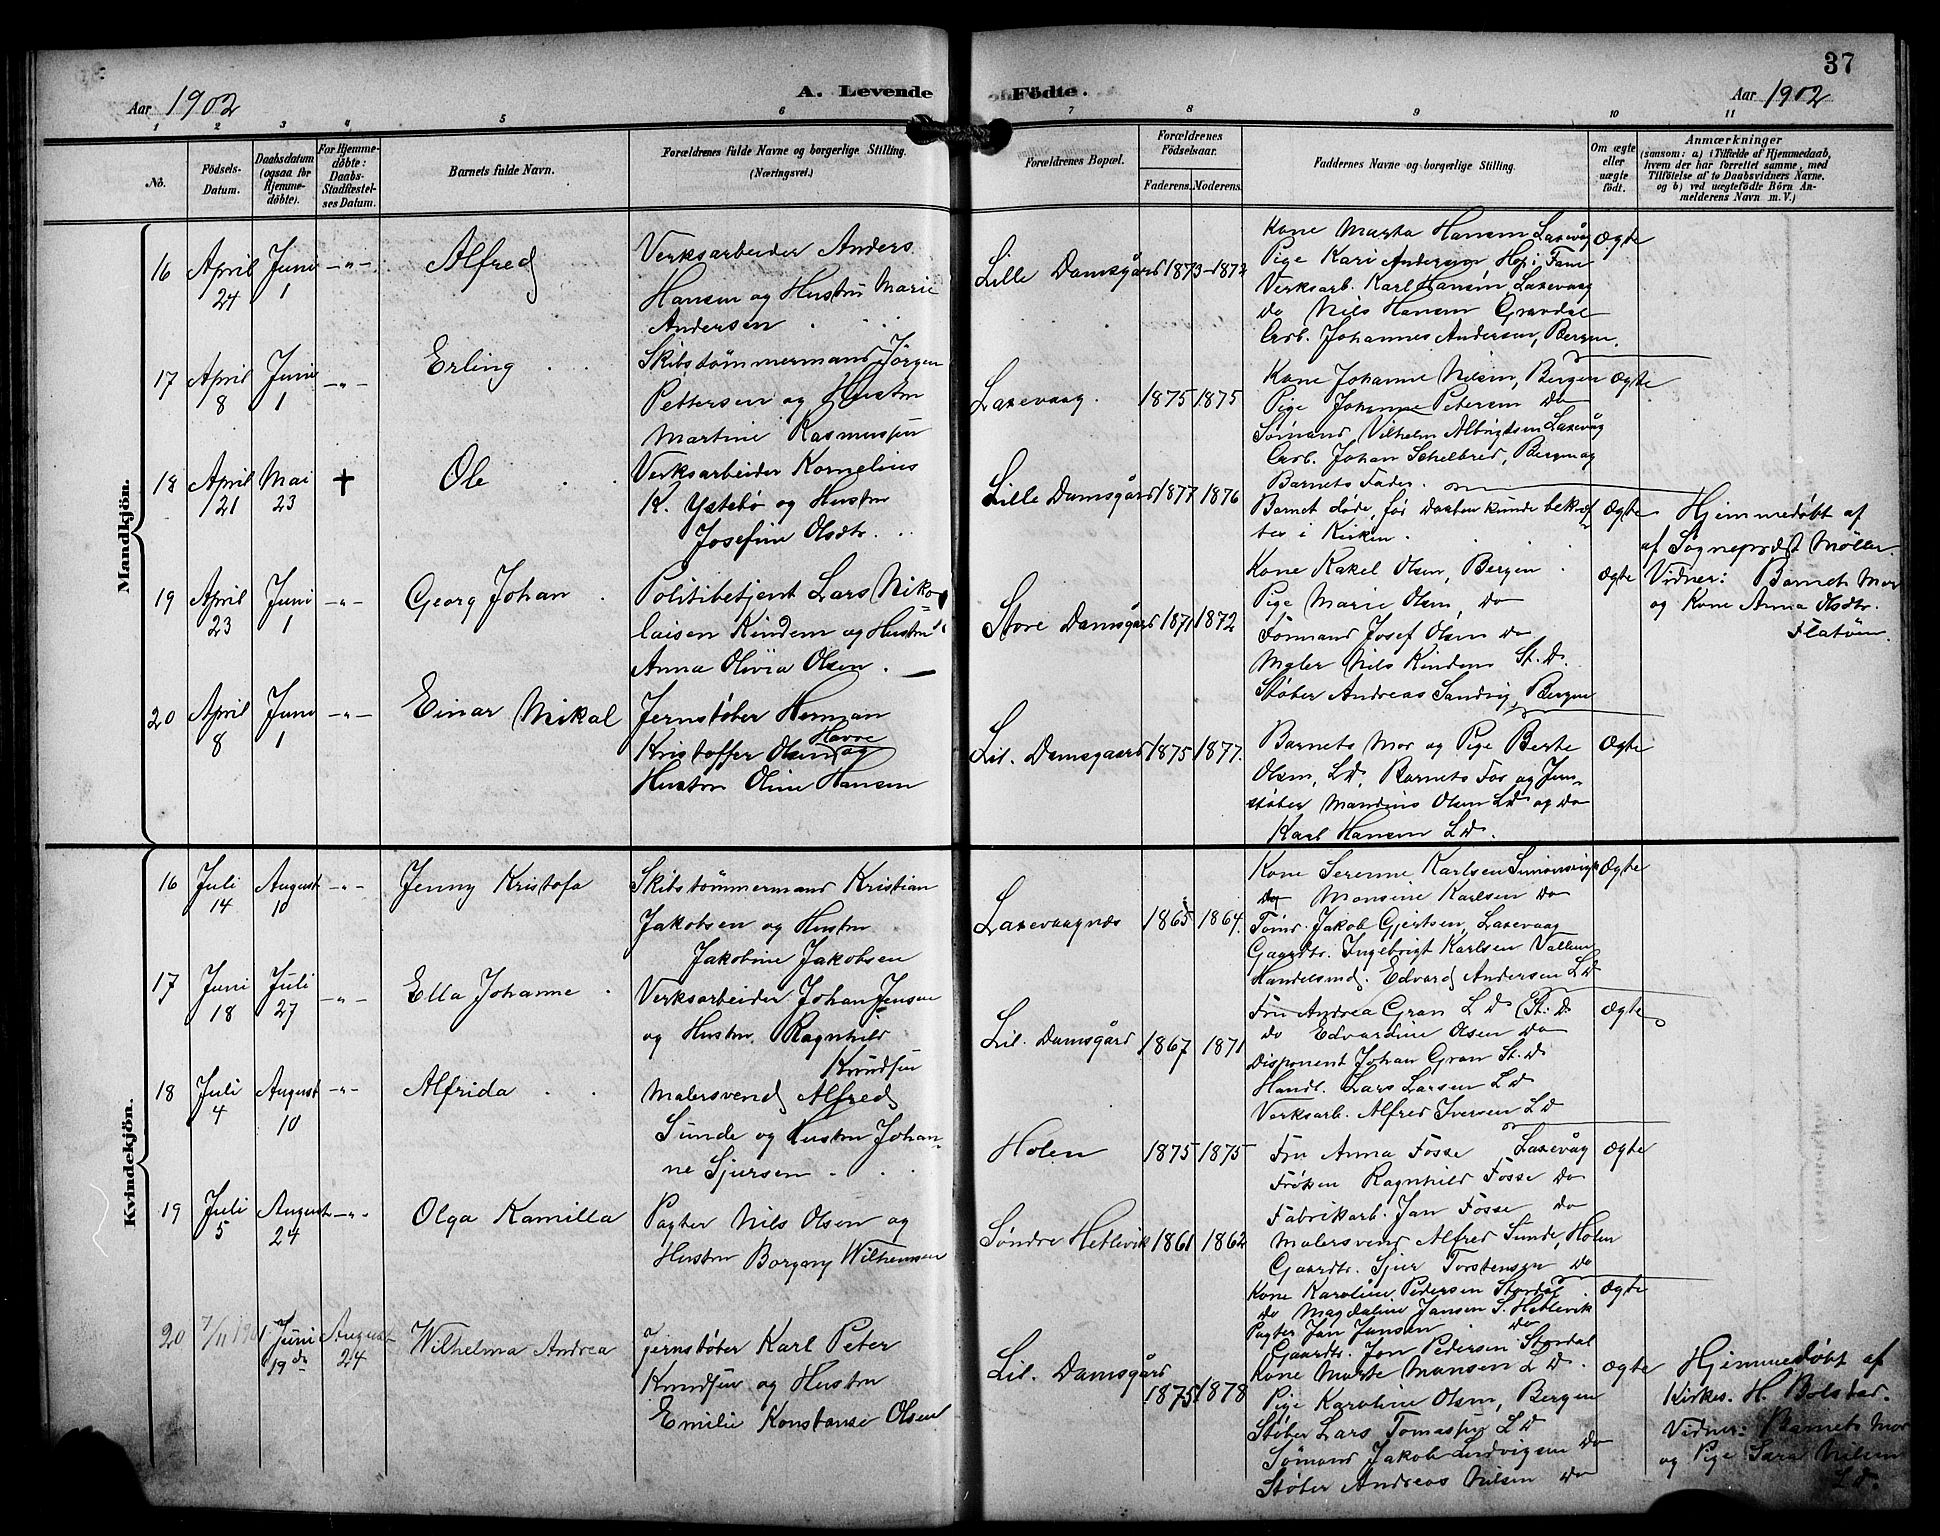 37
Aar 1902
A. Levende Födte.
Aar 1902
1 2 3 4 5 6 7 8 9 10 11
No.
Födsels-Datum.
Daabsdatum (ogsaa for Hjemme-döbte).
For Hjemme-döbte: Daabs-Stadfæstel-ses Datum.
Barnets fulde Navn.
Forældrenes fulde Navne og borgerlige Stilling.
(Næringsvei.)
Forældrenes Bopæl.
Forældrenes Födselsaar.
Faderens. Moderens.
Faddernes Navne og borgerlige Stilling.
Om ægte eller uægte födt.
Anmærkninger
(saasom: a) i Tilfælde af Hjemmedaab,
hvem der har forrettet samme, med
Tilföielse af to Daabsvidners Navne.
og b) ved uægtefödte Börn An-
melderens Navn m. V.)
Mandkjön.
16 April 24 Juni 1 -"- Alfred
Verksarbeider Anders
Hansen og Hustru Marie
Andersen
Lille Damsgård 1873-1872
Kone Marta Hansen Laxevåg Ægte
Pige Kari Andersen Hop i Fane
Verksarb. Karl Hansen, Laxevaag
do Nils Hansen Gravdal
Arb. Johannes Andersen, Bergen.
17 April 8 Juni 1 -"- Erling
Skibstömmermand Jörgen
Pettersen og Hustru
Martine Rasmussen
Laxevaag. 1875 1875
Kone Johanne Nilsen, Bergen Ægte
Pige Johanne Petersen do
Sömand Vilhelm Albrigtsen Laxevåg
Arb. Johan Schelbred, Bergen og
Barnets Fader.
18 April 21 Mai 23 † Ole
Verksarbeider Kornelius
K. Ystebö og Hustru
Josefine Olsdtr.
Lille Damsgård 1877 1876
Barnet döde, för Daaben kunde bekræf Ægte
tes i Kirken.
Hjemmedöbt af
af Sognepræst Möller.
Vidner: Barnets Mor
og Kone Anna Olsdtr.
Flatöen.
19 April 23 Juni 1 -"- Georg Johan
Politibetjent Lars Niko-
laisen Kindem og Hustru
Anna Olivia Olsen.
Store Damsgård 1871 1872
Kone Rakel Olsen, Bergen Ægte
Pige Marie Olsen, do
Formand Josef Olsen do
Maler Nils Kindem St. D.
Støber Andreas Sandvig, Bergen
20 April 8 Juni 1 -"- Einar Mikal
Jernstøber Herman
Kristoffer Olsen Havre og
Hustru Oline Hansen
Lil. Damsgaard 1875 1877.
Barnets Mor og Pige Berte Ægte
Olsen, L D, Barnets Far og Jern-
støber Mandius Olsen L D og do
Karl Hansen L D.
Kvindekjön.
16 Juli 14 August 10 -"- Jenny Kristofa
Skibstömmermand Kristian
Jakobsen og Hustru
Jakobine Jakobsen
Laxevaagnæs 1865 1864.
Kone Serenne Karlsen Simonsvigk Ægte
do Monsine Karlsen do
Tömr. Jakob Gjertsen, Laxevaag
Gaardbr. Ingebrigt Karlsen
Handelsmd. Edvard Andersen L D
17 Juni 18 Juli 27 -"- Ella Johanne
Verksarbeider Johan Jensen
og Hustru Ragnhild
Knudsen
Lil. Damsgård 1867 1871
Fru Andrea Gran L D (St. D Ægte
do Edvardine Olsen do
Disponent Johan Gran St. D
Handl. Lars Larsen L D
Verksarb. Alfred Iversen L D
18 Juli 4 August 10 -"- Alfrida
Malersvend Alfred
Sunde og Hustru Johan-
ne Sjursen
Holen 1875 1875
Fru Anna Fosse Laxevåg Ægte
Fröken Ragnhild Fosse do
Fabrikarb. Jan Fosse do
Malersvend Alfred Sunde, Holen
Gaardbr. Sjur Torstensen do
19 Juli 5 August 24 -"- Olga Kamilla
Pagter Nils Olsen og
Hustru Borgany Wilhemsen
Søndre Hetlevik 1861 1862
Kone Karoline Pedersen Stordal Ægte
do Magdaline Jansen S. Hetlevik
Pagter Jan Jansen do
Gaardbr. Jon Pedersen Stordal
20 7/11 1901 Juni 19de August 24 Wilhelma Andrea
Jernstøber Karl Peter
Knudsen og Hustru
Emilie Konstanse Olsen
Lil. Damsgård 1875 1878
Kone Marte Monsen L D. Ægte
Pige Karoline Olsen, Bergen
Støber Lars Tomassen L D
Sömand Jakob Ludvigsen do
Støber Andreas Nilsen do
Hjemmedöbt af
Kirkes. H. Bolstad.
Vidner: Barnets Mor
og Pige Sara Nilsen
L D.